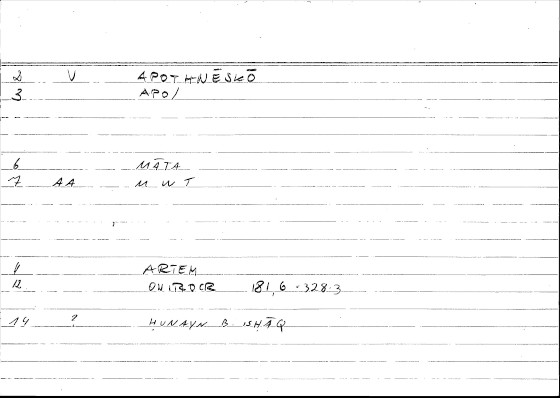 2 V APOTHNĒSKŌ
3 APO/
6 MĀTA
7 AA M W T
11 ARTEM
12 ONIROCR 181,6 - 328.3
14 ? ḤUNAYN B ISḤĀQ